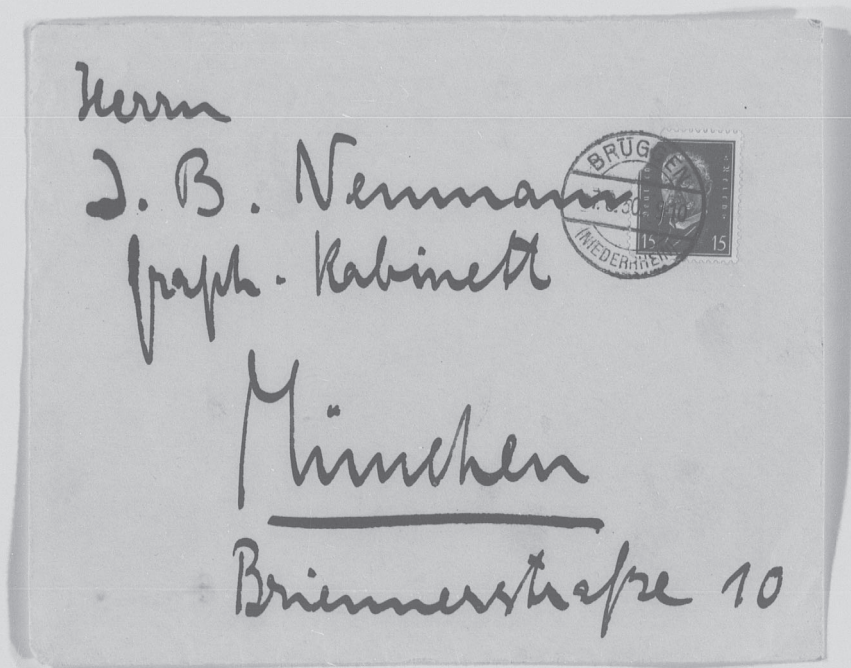 Herrn
J. B. Neumann
graph. Kabinett
München
Briennerstraße 10
BRÜGGEN
(NIEDERRHEIN)
15 15